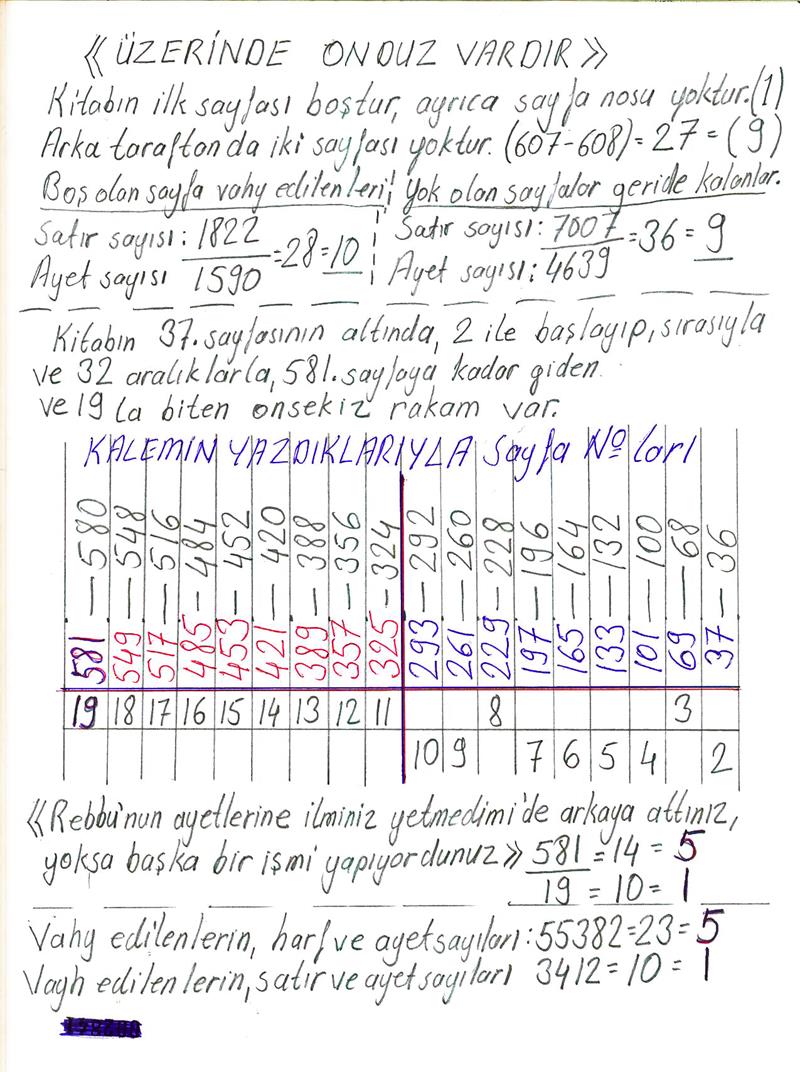 《ÜZERİNDE ONDUZ VARDIR》
Kitabın ilk sayfası boştur, ayrıca sayfa nosu yoktur.(1)
Arka taraftanda iki sayfası yoktur. (607-608)=27=(9)
Boş olan sayfa vahy edilenleri¦ Yok olan sayfalar geride kalanlar.
Satır sayısı: 1822 =28=10 ¦ Satır sayısı: 7007 =36=9
Ayet sayısı 1590 ¦ Ayet sayısı: 4639
Kitabın 37. sayfasının altında, 2 ile başlayıp, sırasıyla
ve 32 aralıklarla, 581. sayfaya kadar giden
ve 19 la biten onsekiz rakam var.
KALEMİN YAZDIKLARIYLA Sayfa Nº ları
581—580 549—548 517—516 485—484 453—452 421—420 389—388 357—356 325-324 293—292 261—260 229—228 197—196 165—164 133—132 101—100 69—68 37—36
19 18 17 16 15 14 13 12 11 8 3
10 9 7 6 5 4 2
《Rebbu'nun ayetlerine ilminiz yetmedimi'de arkaya attınız,
yoksa başka bir işmi yapıyordunuz》 581=14=5
19=10=1
Vahy edilenlerin, harf ve ayet sayıları: 55382=23=5
Vayh edilenlerin, satır ve ayet sayıları 3412=10=1